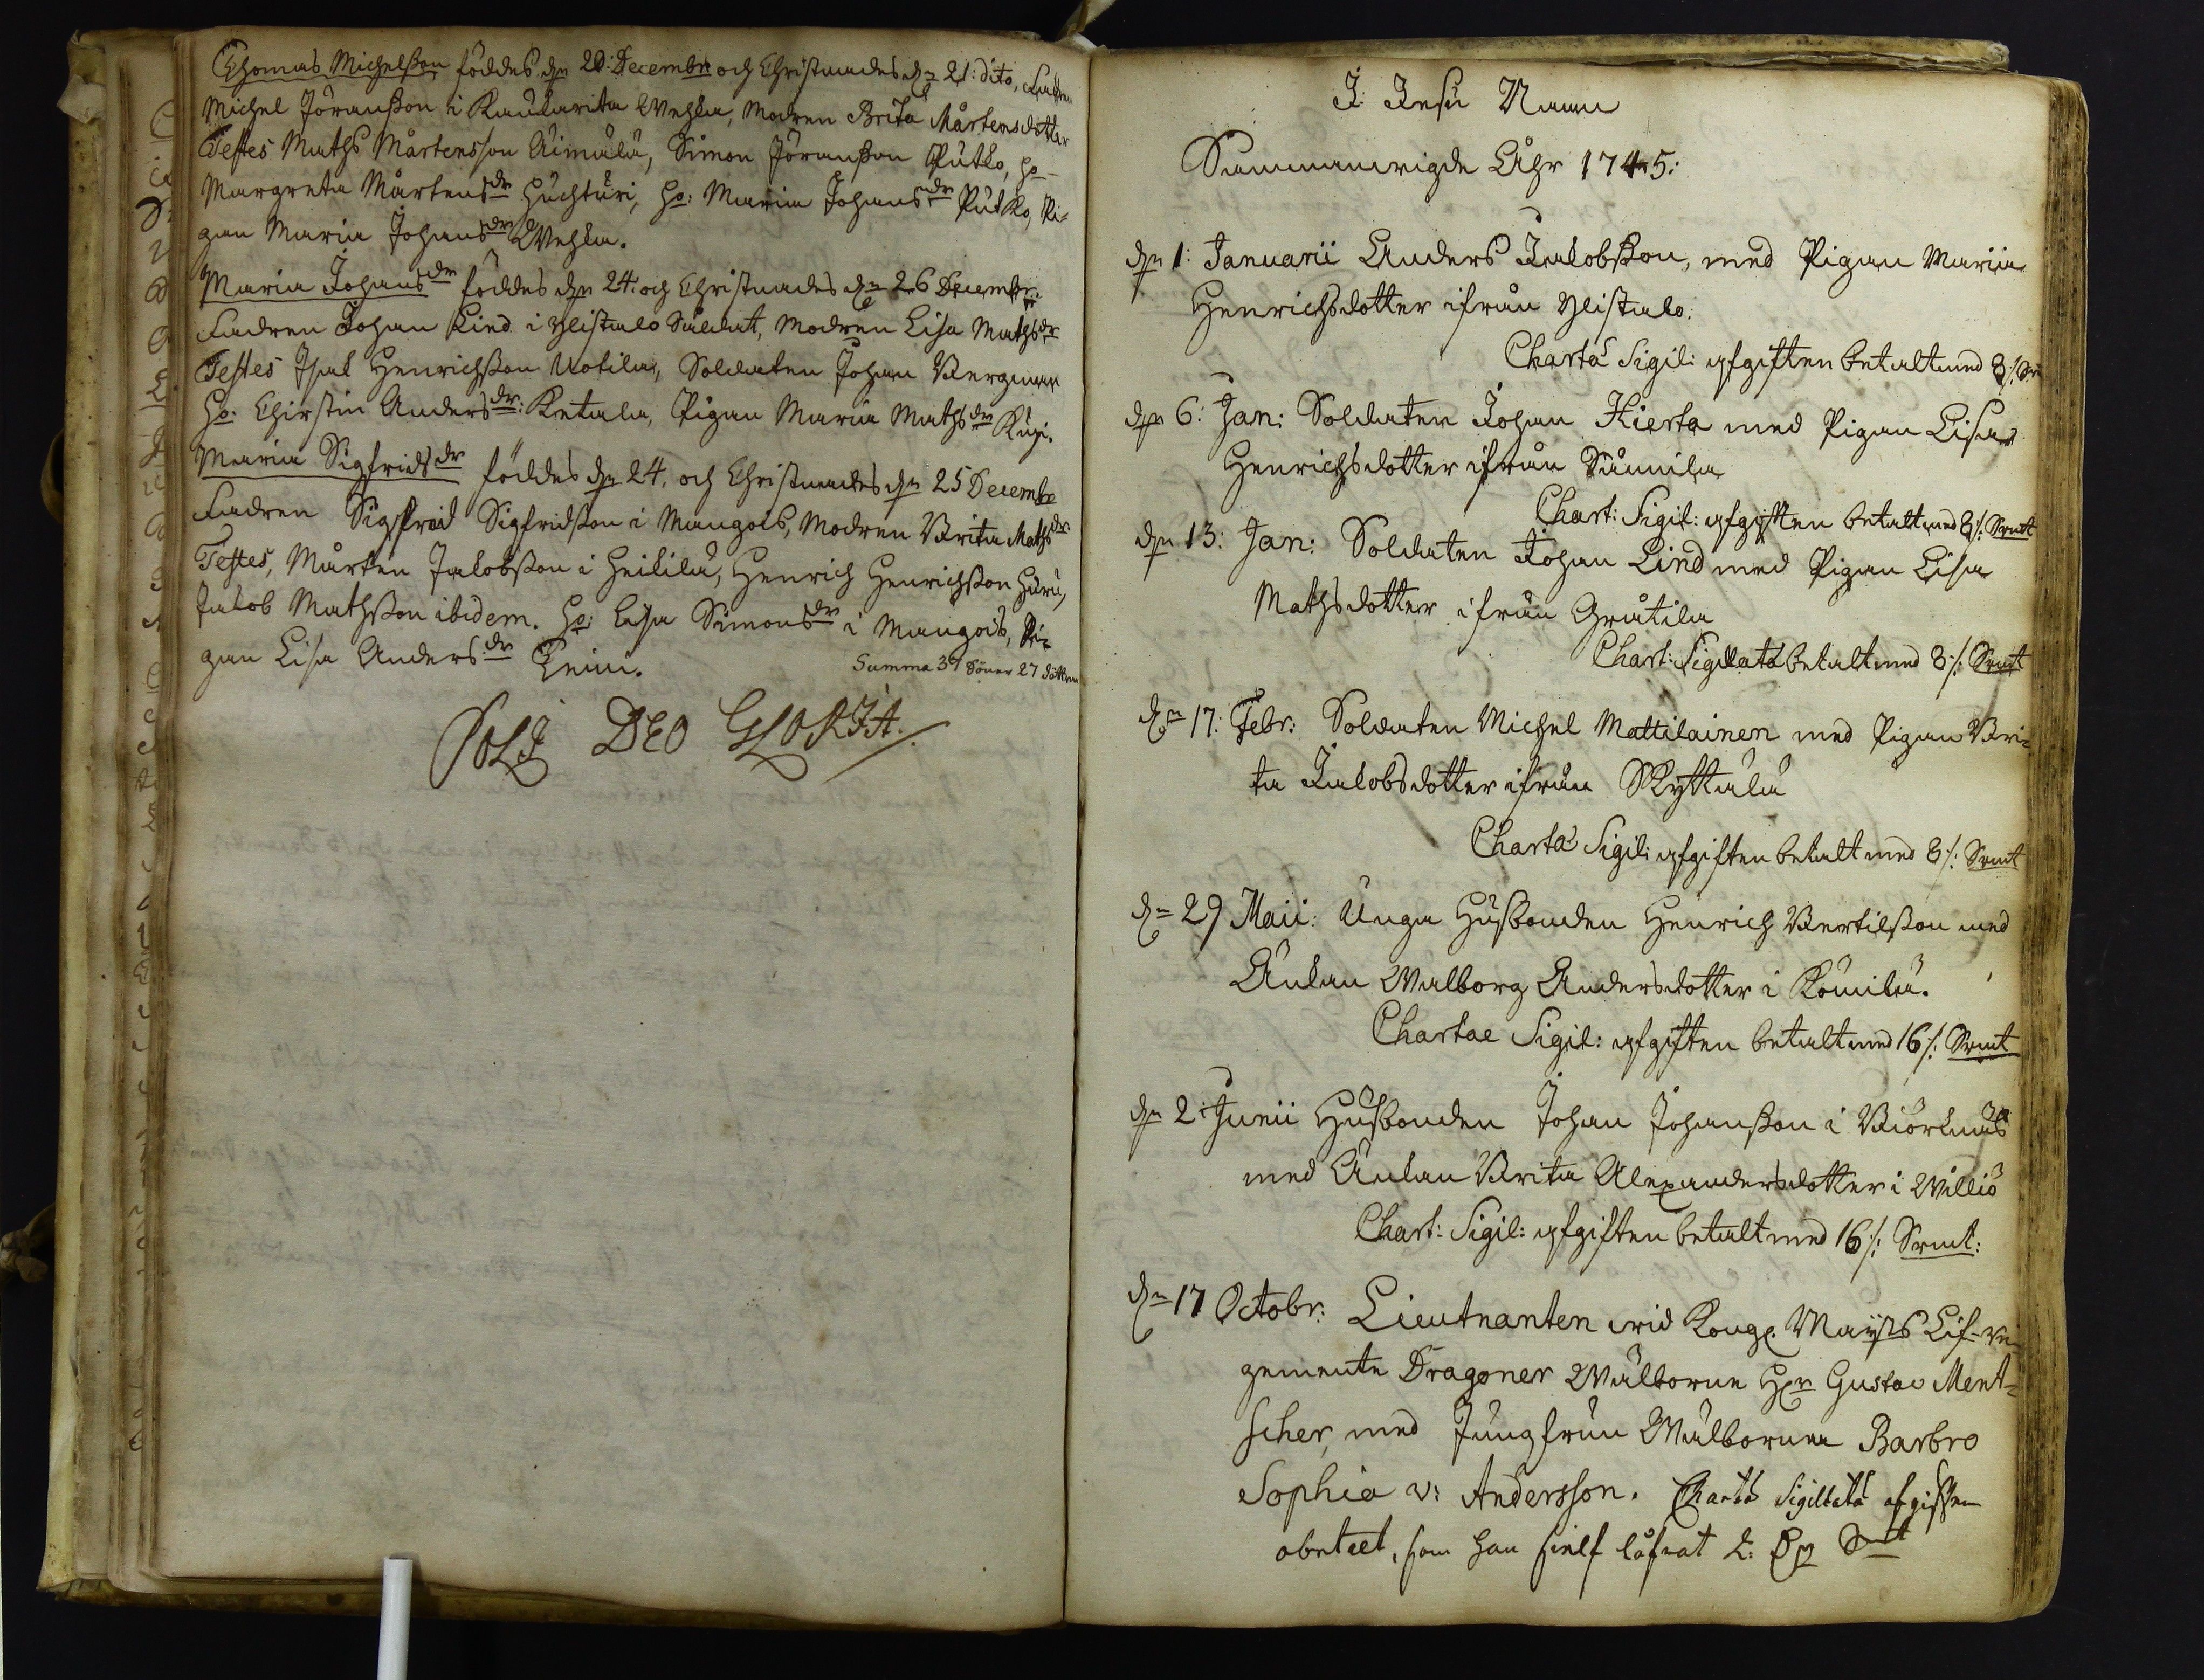 Thomas Michelsson föddes dn 20: Decembr och Christnades dn 21: dito, Fadren
Michel Jöransson i Wehka, Modren Brita Mårtensdotter
Testes Maths Mårtensson Äimälä, Simon Jöransson Putko, ho
Margreta Mårtensdr Huchturi, ho: Maria Johansdr Putko, Pi=
gan Maria Johansdr Wehka.
Maria Johansdr föddes dn 24: och Christnades dn 26 Decembr.
Fadren Johan Lind i Ylistalo Såldat, Modren Lisa Mathsdr
Testes Isak Henrichsson Uotila, Soldaten Johan Bergman
ho. Chirstin Andersdr: Ketala, Pigan Maria Mathsdr
Maria Sigfridsdr föddes dn 24. och Christnades dn 25 Decembr
Fadren Sigfrid Sigfridsson i Mangois, Modren Brita Mathsdr
Testes, Mårten Jakobsson i Heikilä, Henrich Henrichsson
Jakob Mathsson ibidem. ho: Lisa Simonsdr i Mangois, Pi=
gan Lisa Andersdr
Summa 37 Söner 27 döttrar
SOLI DEO GLORIA.
I Jesu Namn
Sammanvigde Åhr 1745:
dn 1: Januarii Anders Jakobsson, med Pigan Maria
Henrichsdotter ifrån Ylistalo.
Charta Sigil: afgiften betalt med 8 /: Srmt
dn 6: Jan: Soldaten Johan Hierta med Pigan Lisa
Henrichsdotter ifrån Sunnila
Chart: Sigil: afgiften betalt med 8 /: Srmt
dn 13: Jan: Soldaten Johan Lind med Pigan Lisa
Mathsdotter ifrån Gråtila
Chart: Sigillata betalt med 8 /: Srmt
dn 17: Febr: Soldaten Michel Mattilainen med Pigan Bri=
ta Jakobsdotter ifrån Skyttälä
Charta Sigil: afgiften betalt med 8 /: Srmt
dn 29 Maii: Unga Husbonden Henrich Bertilsson med
Änkan Walborg Andersdotter i Kömilä.
Chartae Sigil: afgiften betalt med 16 /: Srmt
dn 2: Junii Husbonden Johan Johansson i Biörknäs
med Änkan Brita Alexandersdotter i Williö
Chart: Sigil: afgiften betalt med 16 /: Srmt:
dn 17 Octobr: Lieutnanten wid Kongl. Mayts Lif-re=
gemente Dragoner Wälborne Hr Gustav Ment=
scher, med Jungfrun Wälborna Barbro
Sophia v: Andersson. Charta Sigillata afgiften
obetalt, som han sielf låfvat Srmt